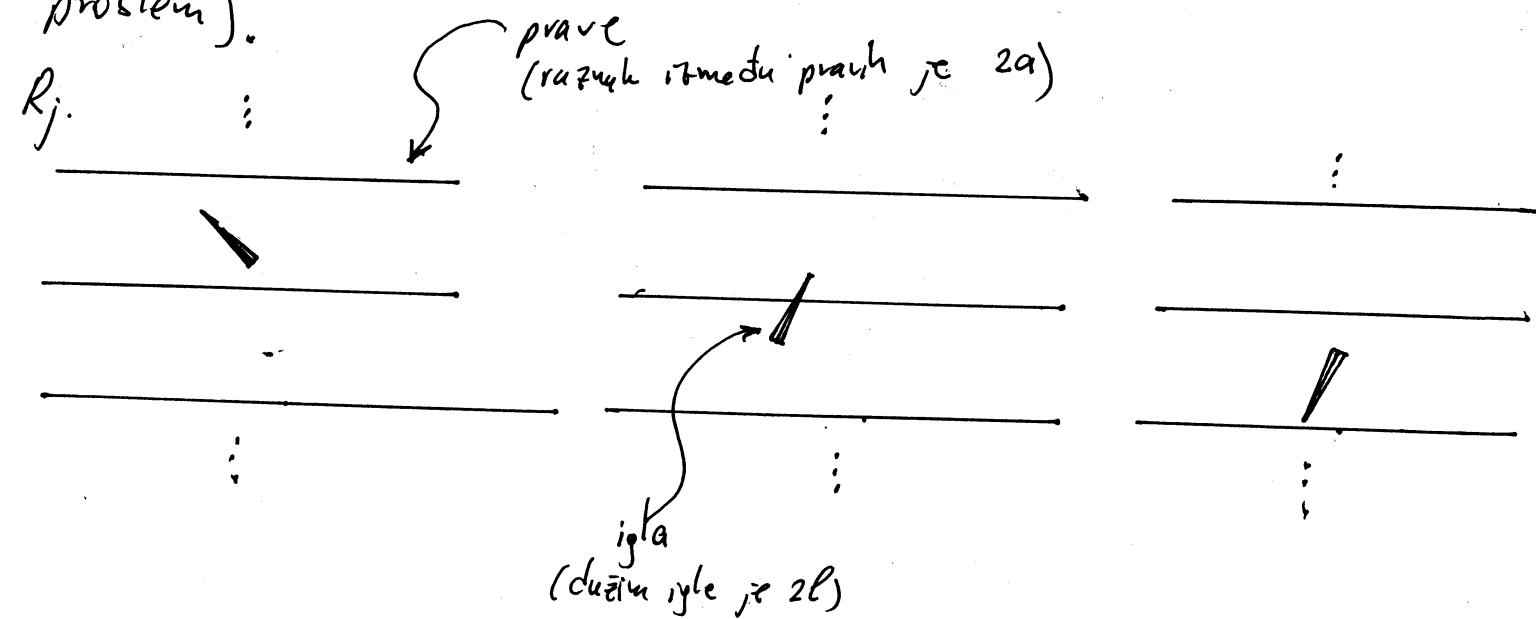 problem).
prave
(razmak između pravih je 2a)
Rj.
igla
(dužina igle je 2l)